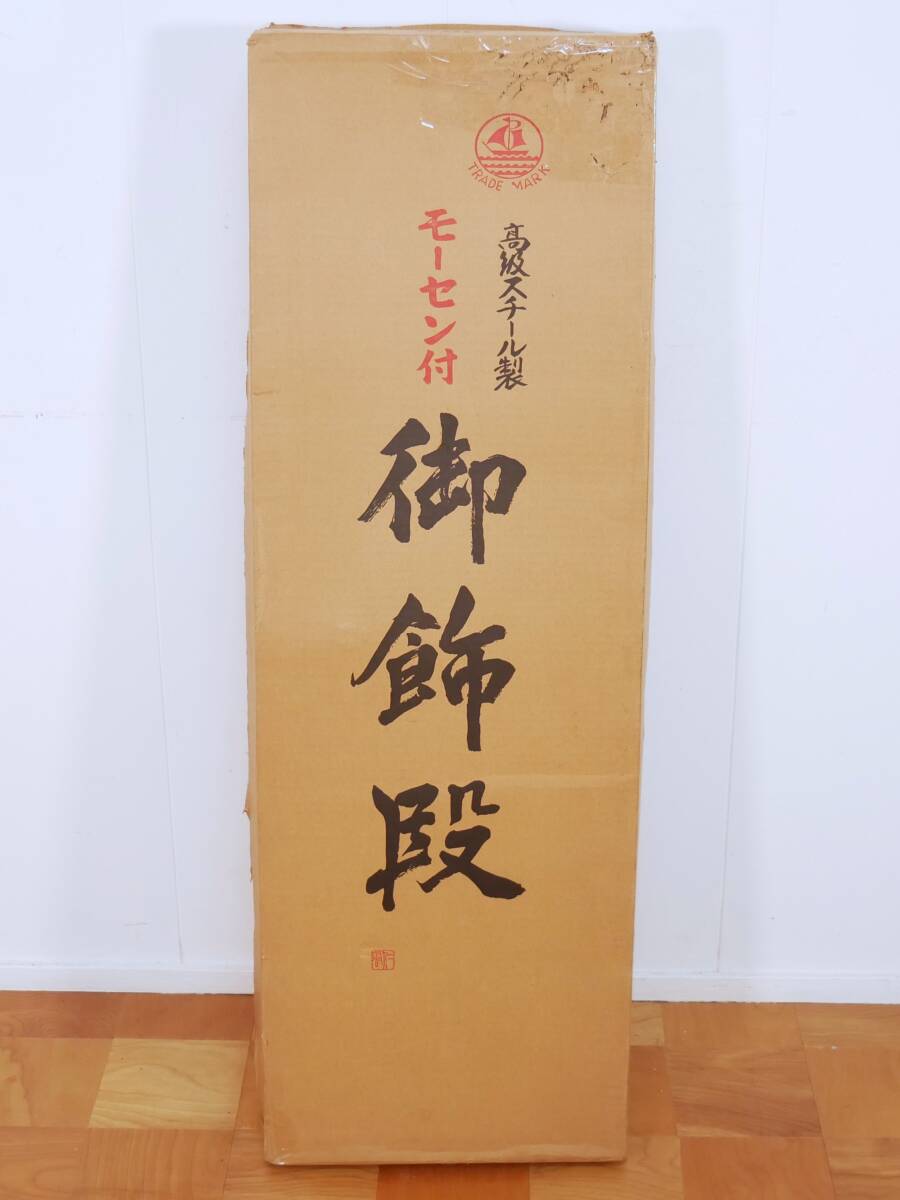 TRADE MARK
高級スチール製
モーセン付
御飾段